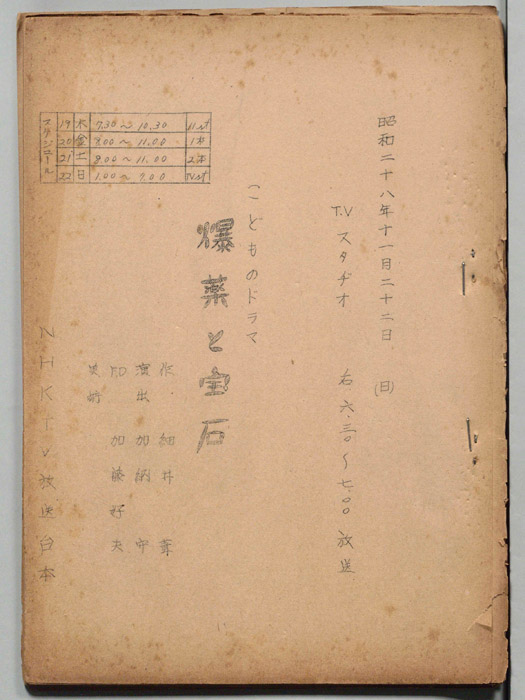 昭和二十八年十一月二十二日 (日)
T.V スタヂオ 右 六.三〇〜七.〇〇 放送
こどものドラマ
爆薬と宝石
作. 細井
演出 加納 守
F.D. 加藤 好夫
NHKTV放送台本
スケジュール
19 木 7.30〜10.30
20 金 8.00〜11.00 1本
21 土 8.00〜11.00 2本
22 日 1.00〜7.00 TVスオ